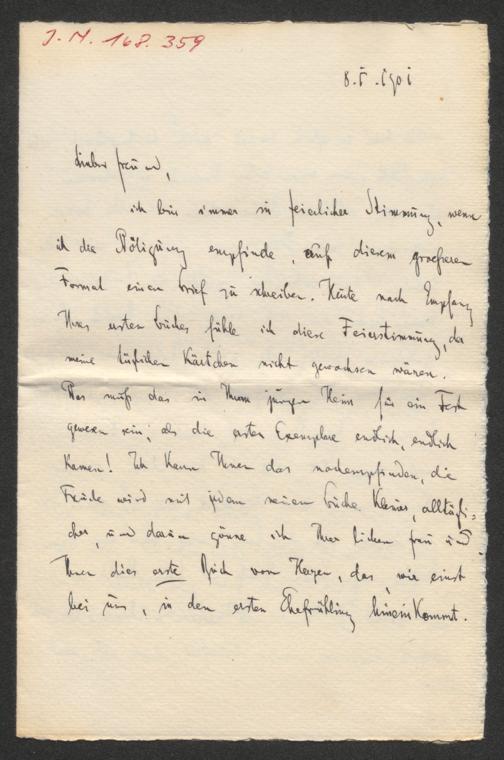 J.N. 168.359
8.I.1901
Lieber Freund,
ich bin immer in feierlicher Stimmung, wenn
ich die Nötigung empfinde, auf diesem groesseren
Format einen Brief zu schreiben. Heute nach Empfang
Ihres ersten Buches fühle ich diese Feierstimmung, der
meine Kärtchen nicht gewachsen wären.
Was muß das in Ihrem jungen Heim für ein Fest
gewesen sein, als die ersten Exemplare endlich, endlich
kamen! Ich kann Ihnen das nachempfinden, die
Freude wird mit jedem neuen Buche kleiner, alltägli-
cher, und darum gönne ich Ihrer lieben Frau und
Ihnen dies erste Buch von Herzen, das, wie einst
bei uns, in den ersten Ehefrühling hineinkommt.